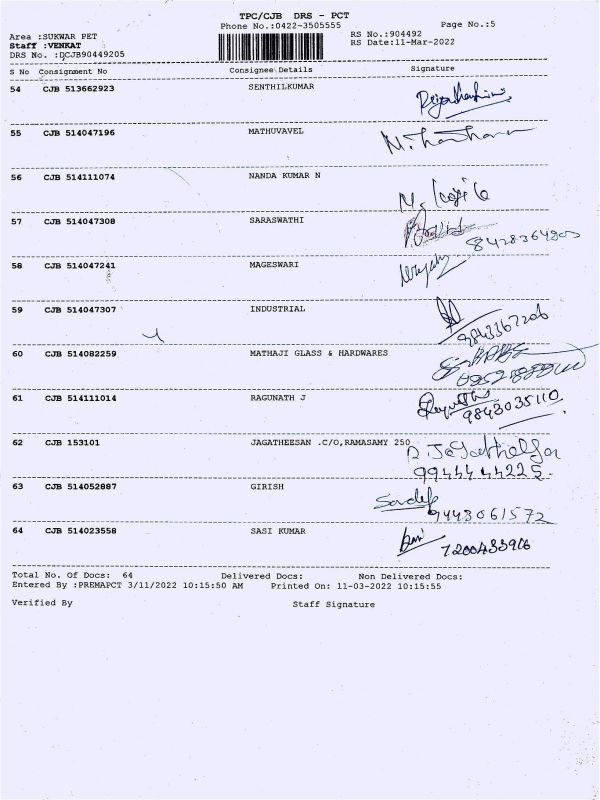 TPC/CJB DRS - PCT
Phone No.:0422-3505555
Page No.:5
Area :SUKWAR PET
RS No.:904492
Staff :VENKAT
RS Date:11-Mar-2022
DRS No. :DCJB90449205
S No Consignment No Consignee Details Signature
54 CJB 513662923 SENTHILKUMAR
55 CJB 514047196 MATHUVAVEL
56 CJB 514111074 NANDA KUMAR N
57 CJB 514047308 SARASWATHI
58 CJB 514047241 MAGESWARI
59 CJB 514047307 INDUSTRIAL
60 CJB 514082259 MATHAJI GLASS & HARDWARES
61 CJB 514111014 RAGUNATH J
9843035110
62 CJB 153101 JAGATHEESAN .C/O,RAMASAMY 250
9944444225.
63 CJB 514052887 GIRISH
Sandep
9443061572
64 CJB 514023558 SASI KUMAR
7200433916
Total No. Of Docs: 64 Delivered Docs: Non Delivered Docs:
Entered By :PREMAPCT 3/11/2022 10:15:50 AM Printed On: 11-03-2022 10:15:55
Verified By Staff Signature